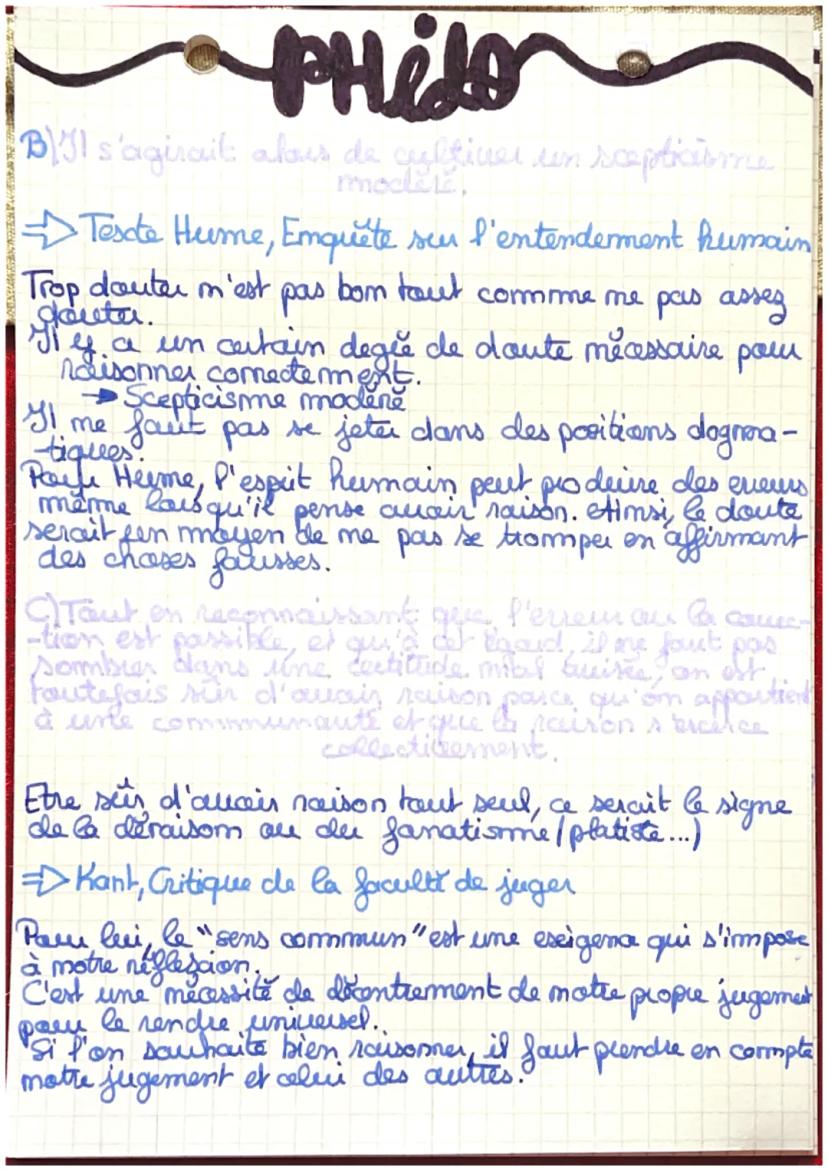 PHilo
B) Il s'agirait alors de cultiver un scepticisme
modéré.
⇒ Texte Hume, Enquête sur l'entendement humain
Trop douter n'est pas bon tout comme ne pas assez
douter.
Il y a un certain degré de doute nécessaire pour
raisonner correctement.
→ Scepticisme modéré
Il ne faut pas se jeter dans des positions dogma-
-tiques.
Pour Hume, l'esprit humain peut produire des erreurs
même lorsqu'il pense avoir raison. Ainsi, le doute
serait un moyen de ne pas se tromper en affirmant
des choses fausses.
C) Tout en reconnaissant que l'erreur ou la correc-
-tion est possible, et qu'à cet égard, il ne faut pas
sombrer dans une certitude mal avisée, on est
toutefois sûr d'avoir raison parce qu'on appartient
à une communauté et que la raison s'exerce
collectivement.
Etre sûr d'avoir raison tout seul, ce serait le signe
de la déraison ou du fanatisme (platiste...)
⇒ Kant, Critique de la faculté de juger
Pour lui, le "sens commun" est une exigence qui s'impose
à notre réflexion.
C'est une nécessité de décentrement de notre propre jugement
pour le rendre universel.
Si l'on souhaite bien raisonner, il faut prendre en compte
notre jugement et celui des autres.